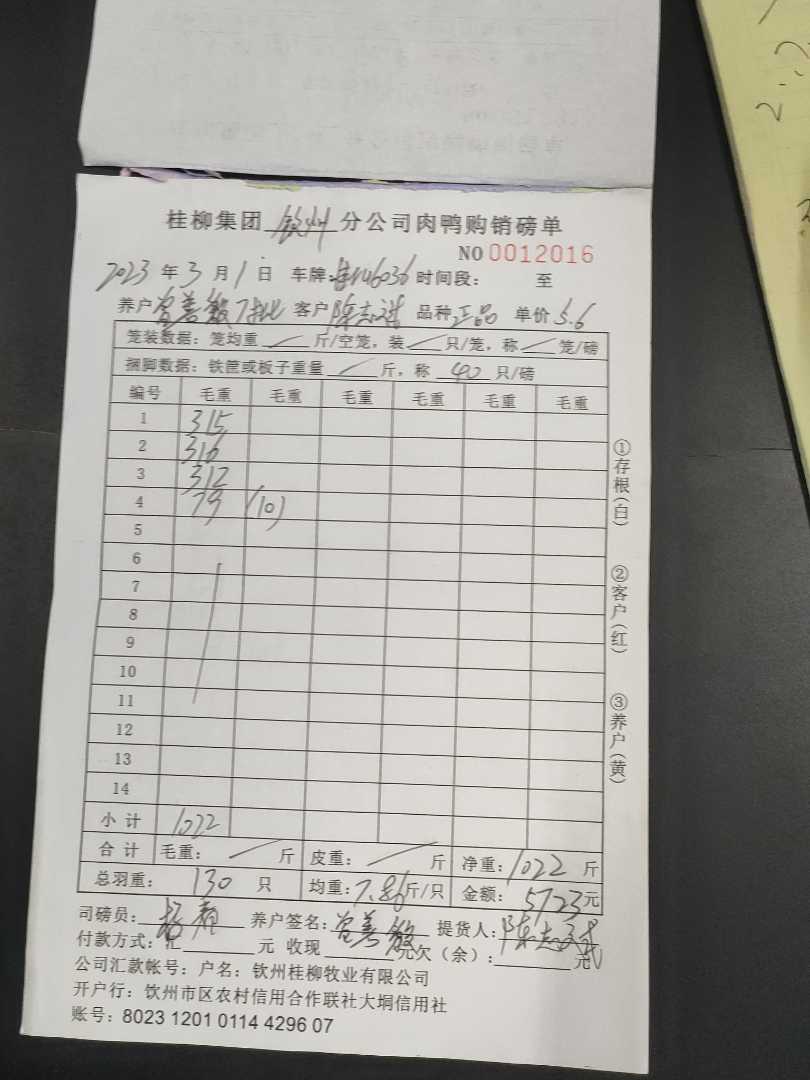 桂柳集团 钦州 分公司肉鸭购销磅单
NO 0012016
2023 年 3 月 1 日 车牌: 时间段: 至
养户 客户 陈志 品种 正品 单价 5.6
笼装数据: 笼均重 / 斤/空笼, 装 / 只/笼, 称 / 笼/磅
捆脚数据: 铁筐或板子重量 / 斤, 称 40 只/磅
编号 毛重 毛重 毛重 毛重 毛重 毛重
1 315
2 316
3 312
4 79 (10)
5
6
7
8
9
10
11
12
13
14
小 计 1022
合 计 毛重: / 斤 皮重: / 斤 净重: 1022 斤
总羽重: 130 只 均重: 7.86 斤/只 金额: 5723 元
司磅员: 养户签名: 提货人: 陈志
付款方式: 汇 元 收现 元欠(余): 元
公司汇款帐号: 户名: 钦州桂柳牧业有限公司
开户行: 钦州市区农村信用合作联社大垌信用社
账号: 8023 1201 0114 4296 07
①存根(白) ②客户(红) ③养户(黄)